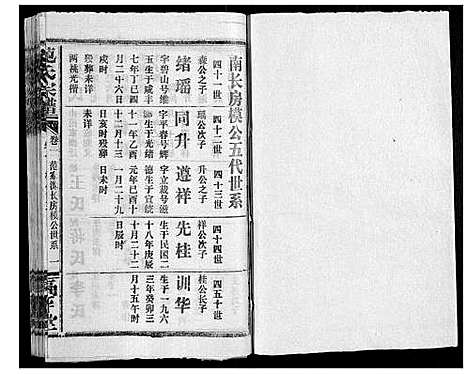 南长房模公五代世系
四十一世
森公之子
绪瑶
字碧山号维
五生于咸丰
七年丁巳四
月二十六日
戌时
殁葬未详
两桃光偕
四十二世
瑶公次子
同升
字平春号辉
五生于光绪
十一年乙酉
十二月十三
日亥时殁葬
未详
四十三世
升公之子
遵祥
字立栽号富
德生于宣统
元年己酉十
一月二十九
日未时
四十四世
祥公次子
先桂
生于民国二
十八年庚辰
十月二十二
日辰时
四五十世
桂公长子
训华
生于一九六
三年癸卯三
月十五午时
氏宗谱
卷
南长房模公世系
一